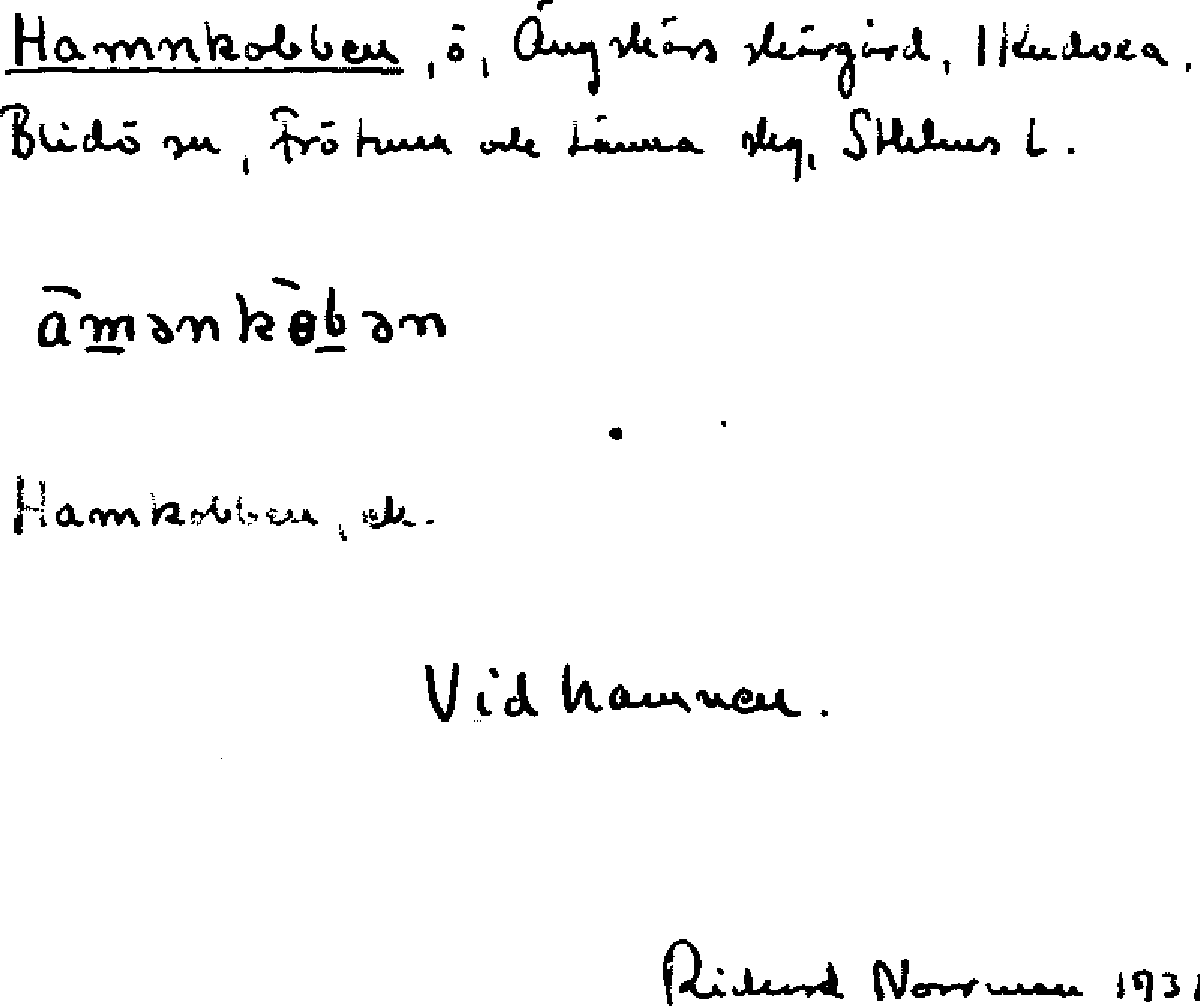 Hamnkobben, ö, Ängskärs skärgård, Ikudoxa,
Blidö sn, Frötuna och Länna skg, Sthlms L.
āmənkòbən
Hamkobben, ek.
Vid hamnen.
Rickard Norrman 1931